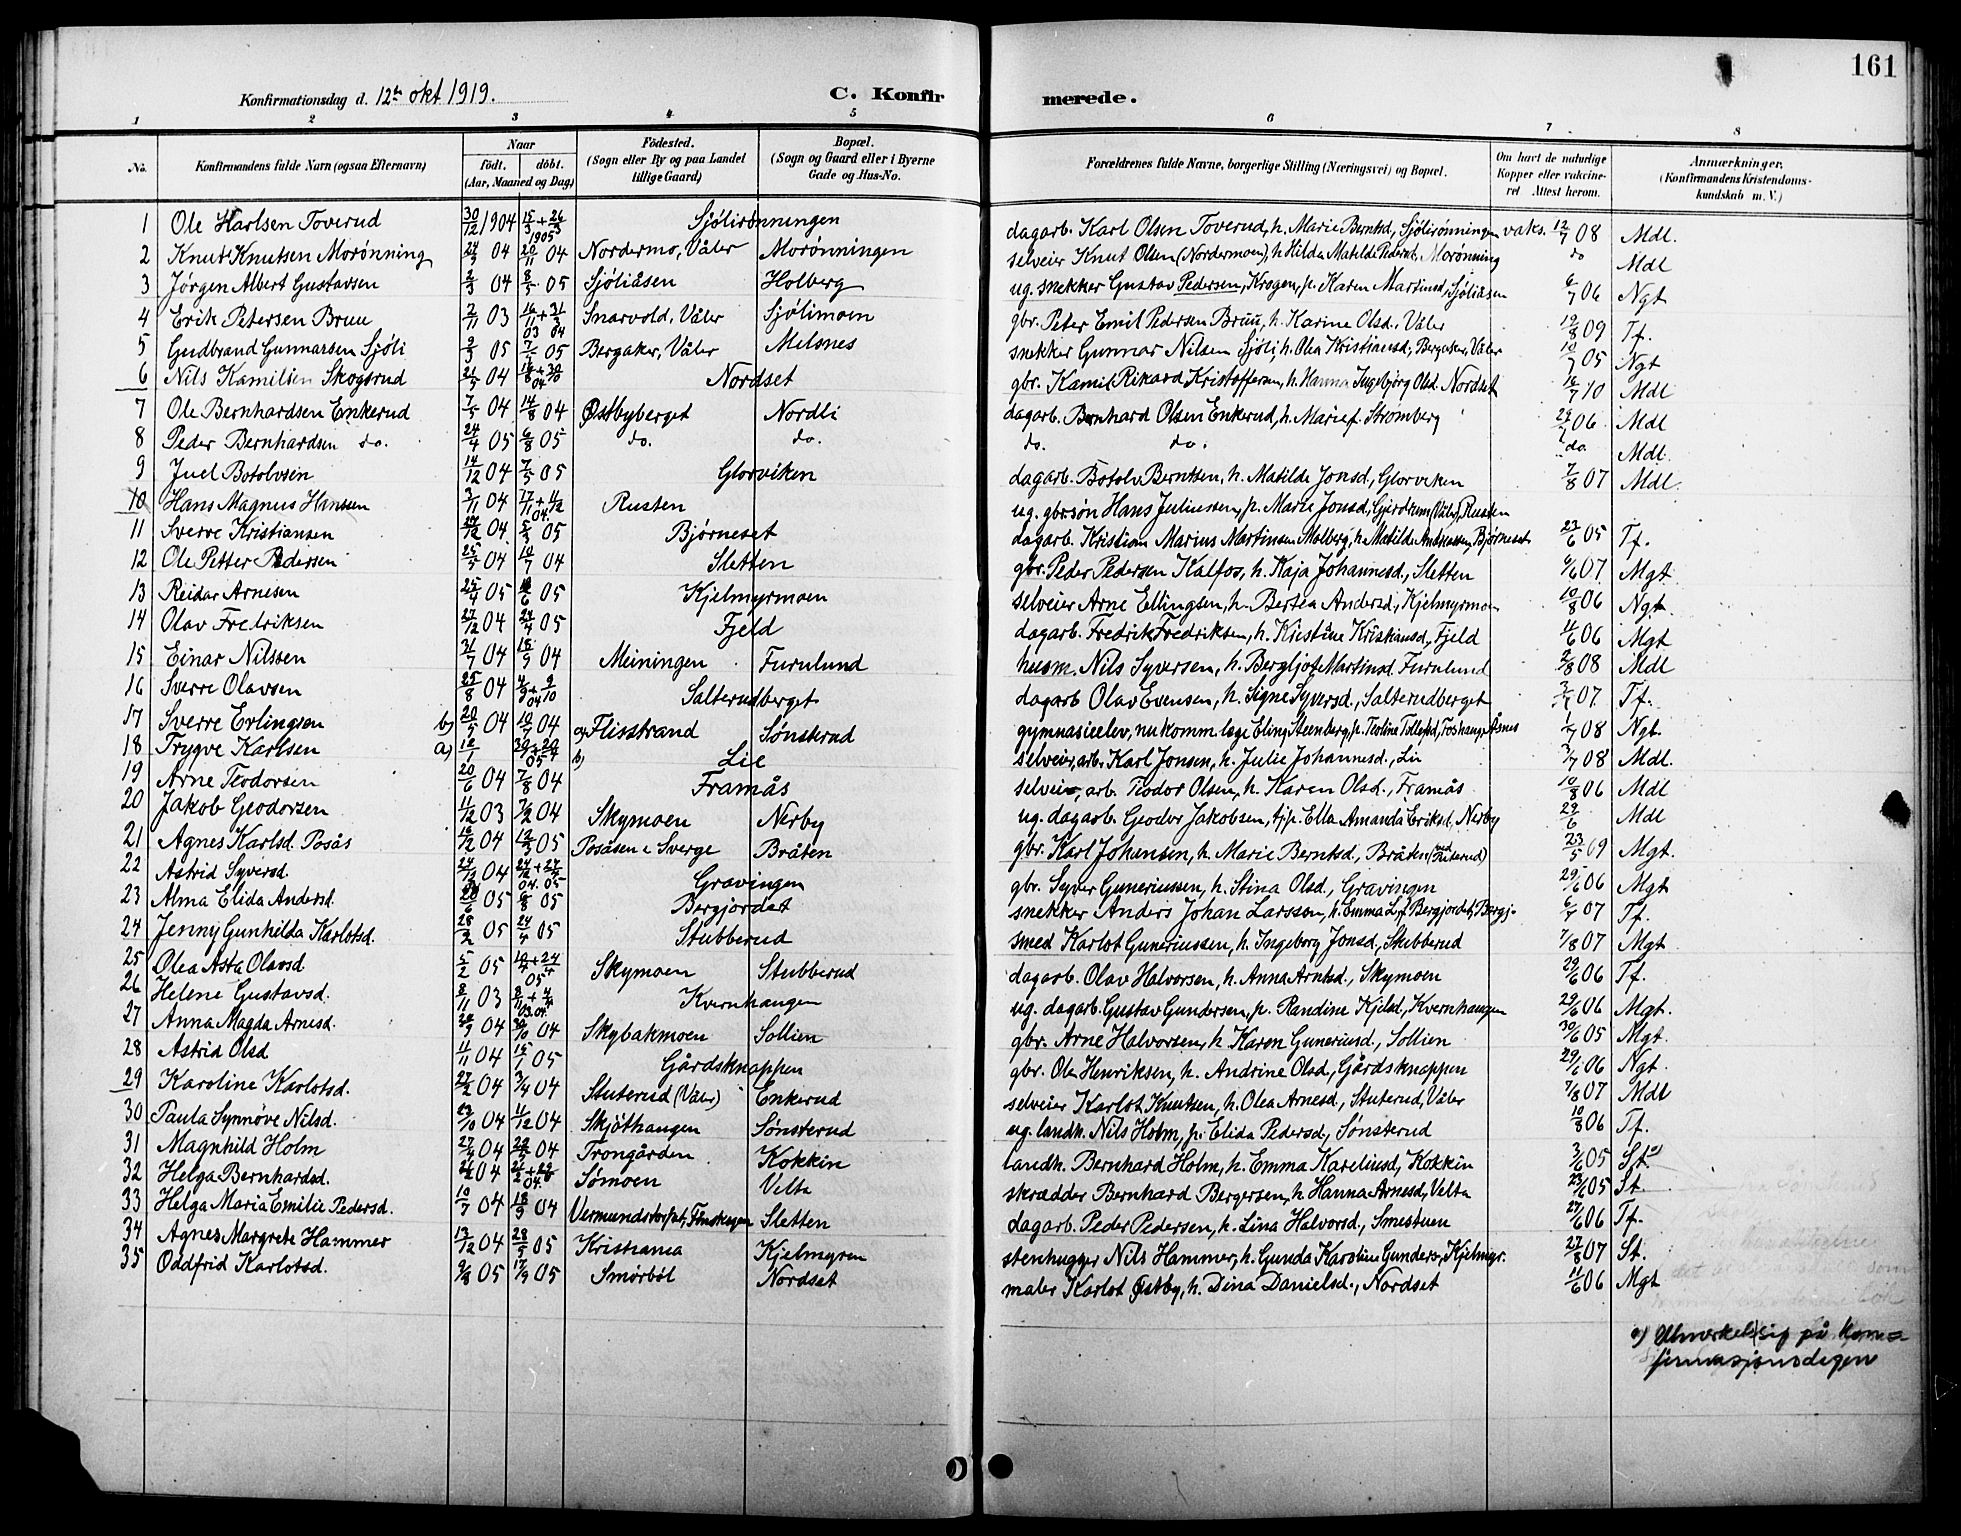 161
Konfirmationsdag d. 12te okt 1919. C. Konfirmerede.
1 2 3 4 5 6 7 8
No. Konfirmandens fulde Navn (ogsaa Efternavn) Naar födt. döbt. (Aar, Maaned og Dag) Födested. (Sogn eller By og paa Landet tillige Gaard) Bopæl. (Sogn og Gaard eller i Byerne Gade og Hus-No. Forældrenes fulde Navne, borgerlige Stilling (Næringsvei) og Bopæl. Om havt de naturlige Kopper eller vakcineret Attest herom. Anmærkninger. (Konfirmandens Kristendomskundskab m. V.)
1 Ole Karlsen Toverud 30/12 1904 15/3 + 26/3 1905 Sjölirønningen dagarb. Karl Olsen Toverud, h. Marie Berntsd, Sjölirønningen vaks. 12/7 08 Mdl.
2 Knut Knutsen Morønning 24/9 04 20/11 04 Nordermo, Våler Morønningen selveier Knut Olsen (Nordermoen), h. Hilda Matilde Pedersd. Morønning do Mdl
3 Jørgen Albert Gustavsen 2/3 04 8/5 05 Sjöliåsen Holberg ug. snekker Gustav Pedersen, Krogen, p. Karen Martinsd, Sjöliåsen 6/7 06 Ngt
4 Erik Petersen Bruu 2/11 03 16/11 03 + 31/3 04 Snarvold, Våler Sjölimoen gbr. Peter Emil Pedersen Bruu, h. Karine Olsd., Våler 19/8 09 Tf.
5 Gudbrand Gunnarsen Sjöli 9/3 05 7/5 05 Bergaker, Våler Melsnes snekker Gunnar Nilsen Sjöli, h. Olea Kristiansd., Bergaker, Våler 10/7 05 Ngt
6 Nils Kamilsen Skogsrud 21/5 04 Nordset gbr. Kamil Rikard Kristoffersen, h. Hanna Ingebjørg Olsd. Nordset 16/7 10 Mdl
7 Ole Bernhardsen Enkerud 7/5 04 14/8 04 Østbyberget Nordli dagarb. Bernhard Olsen Enkerud, h. Marie f. Strømberg 29/7 06 Mdl
8 Peder Bernhardsen do. 24/4 05 6/8 05 do. do. do. do. do. Mdl.
9 Juel Botolvsen 14/12 04 7/5 05 Glorviken dagarb. Botolv Berntsen, h. Matilde Jonsd., Glorviken 7/8 07 Mdl.
10 Hans Magnus Hansen 3/11 04 Rusten ug. gbr.søn Hans Juliussen, p. Marie Jonsd., Gjerdrum (Våler), Rusten
11 Sverre Kristiansen 27/12 04 5/3 05 Bjørneset dagarb. Kristian Marius Martinsen Molberg, h. Matilde Andreassen, Bjørneset 23/6 05 Tf.
12 Ole Petter Pedersen 25/5 04 10/7 04 Sletten gbr. Peder Pedersen Kalfos, h. Kaja Johannesd., Sletten 4/6 07 Mgt
13 Reidar Arnesen 25/4 05 05 Kjelmyrmoen selveier Arne Ellingsen, h. Bertea Andersd., Kjelmyrmoen 10/8 06 Ngt.
14 Olav Fredriksen 27/12 04 24/4 05 Fjeld dagarb. Fredrik Fredriksen, h. Kristine Kristiansd., Fjeld 11/6 06 Mgt
15 Einar Nilssen 31/7 04 18/9 04 Meiningen Furulund husm. Nils Syversen, h. Bergljot Martinsd. Furulund 2/8 08 Mdl
16 Sverre Olavsen 25/8 04 4/9 + 9/10 04 Salterudberget dagarb Olav Evensen, h. Signe Syversd., Salterudberget 07. Tf.
17 Sverre Erlingsen b) 20/5 04 10/7 04 a) Flisstrand Sønsterud gymnasieelev, nu komm. læge Eling Steenberg, p. Teoline Tollefsd, Foshaug, Åsnes 1/7 08 Ngt.
18 Trygve Karlsen a) b) Lie selveier, arb. Karl Jonsen, h. Julie Johannesd., Lie 3/7 08 Mdl.
19 Arne Teodorsen 20/6 04 7/8 04 Framås selveier, arb. Teodor Olsen, h. Karen Olsd., Framås 10/8 06 Mdl
20 Jakob Geodorsen 11/12 03 7/2 04 Skymoen Nerby ug. dagarb. Geodor Jakobsen, tjp. Ella Amanda Eriksd, Nerby 29/6 Mdl
21 Agnes Karlsd. Posås 16/12 04 12/3 05 Posåsen i Sverge Bråten gbr. Karl Johansen, h. Marie Berntsd., Bråten 23/5 09 Mgt.
22 Astrid Syversd. 24/12 04 04. 05 Gravingen gbr. Syver Guneriussen, h. Stina Olsd., Gravingen 29/6 06 Mgt
23 Alma Elida Andersd. 05 6/8 05 Bergjordet snekker Anders Johan Larssen, h. Emma L. f. Bergjordet, Bergj. 6/7 07 Tf.
24 Jenny Gunhilda Karlotsd. 28/2 05 24/4 05 Stubberud smed Karlot Guneriussen, h. Ingeborg Jonsd., Stubberud 7/8 07 Mgt
25 Olea Asta Olavsd. 5/2 05 10/4 + 24/4 05 Skymoen Stubberud dagarb. Olav Halvorsen, h. Anna Arntsd., Skymoen 29/6 06 Tf.
26 Helene Gustavsd. 8/11 03 03. 04. Kvernhaugen ug. dagarb. Gustav Gundersen, p. Randine Kjelsd, Kvernhaugen 29/6 06 Mgt.
27 Anna Magda Arnesd. 04 30/10 04 Skybakmoen Sollien gbr. Arne Halvorsen, h. Karen Guneriusd., Sollien 30/6 05 Mgt.
28 Astrid Olsd 4/11 04 15/1 05 Gårdsknappen gbr. Ole Henriksen, h. Andrine Olsd., Gårdsknappen 29/6 06 Ngt.
29 Karoline Karlotsd. 27/2 04 3/4 04 Stuterud (Våler) Enkerud selveier Karlot Knutsen, h. Olea Arnesd., Stuterud, Våler 7/8 07 Mdl
30 Paula Synnöve Nilsd. 04 11/12 04 Skjöthaugen Sønsterud ug. landh. Nils Holm, p. Elida Pedersd., Sønsterud 10/8 06 Tf.
31 Magnhild Holm 04 04 Trongården Kokkin landh. Bernhard Holm, h. Emma Kareliusd, Kokkin 3/6 05 St. a)
32 Helga Bernhardsd. 04 04. Sømoen Velta skrædder Bernhard Bergersen, h. Hanna Arnesd, Velta 23/6 05 St.
33 Helga Maria Emilie Pedersd. 10/7 04 18/9 04 Sletten dagarb. Peder Pedersen, h. Lina Halvorsd., Smestuen 29/6 06 Tf.
34 Agnes Margrete Hammer 13/12 04 28/5 05 Kristiania Kjelmyren stenhugger Nils Hammer, h. Gunda Karoline Gunders., Kjelmyr. 27/8 07 St.
35 Oddfrid Karlotsd. 9/8 05 17/9 05 Smörböl Nordset maler Karlot Østby, h. Dina Danielsd., Nordset 11/6 06 Mgt
a) Utmerket sig på konfirmasjonsdagen